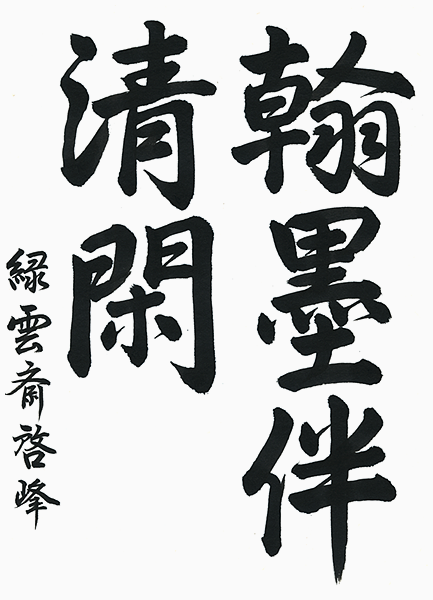 翰墨伴
清閑
緑雲斎啓峰